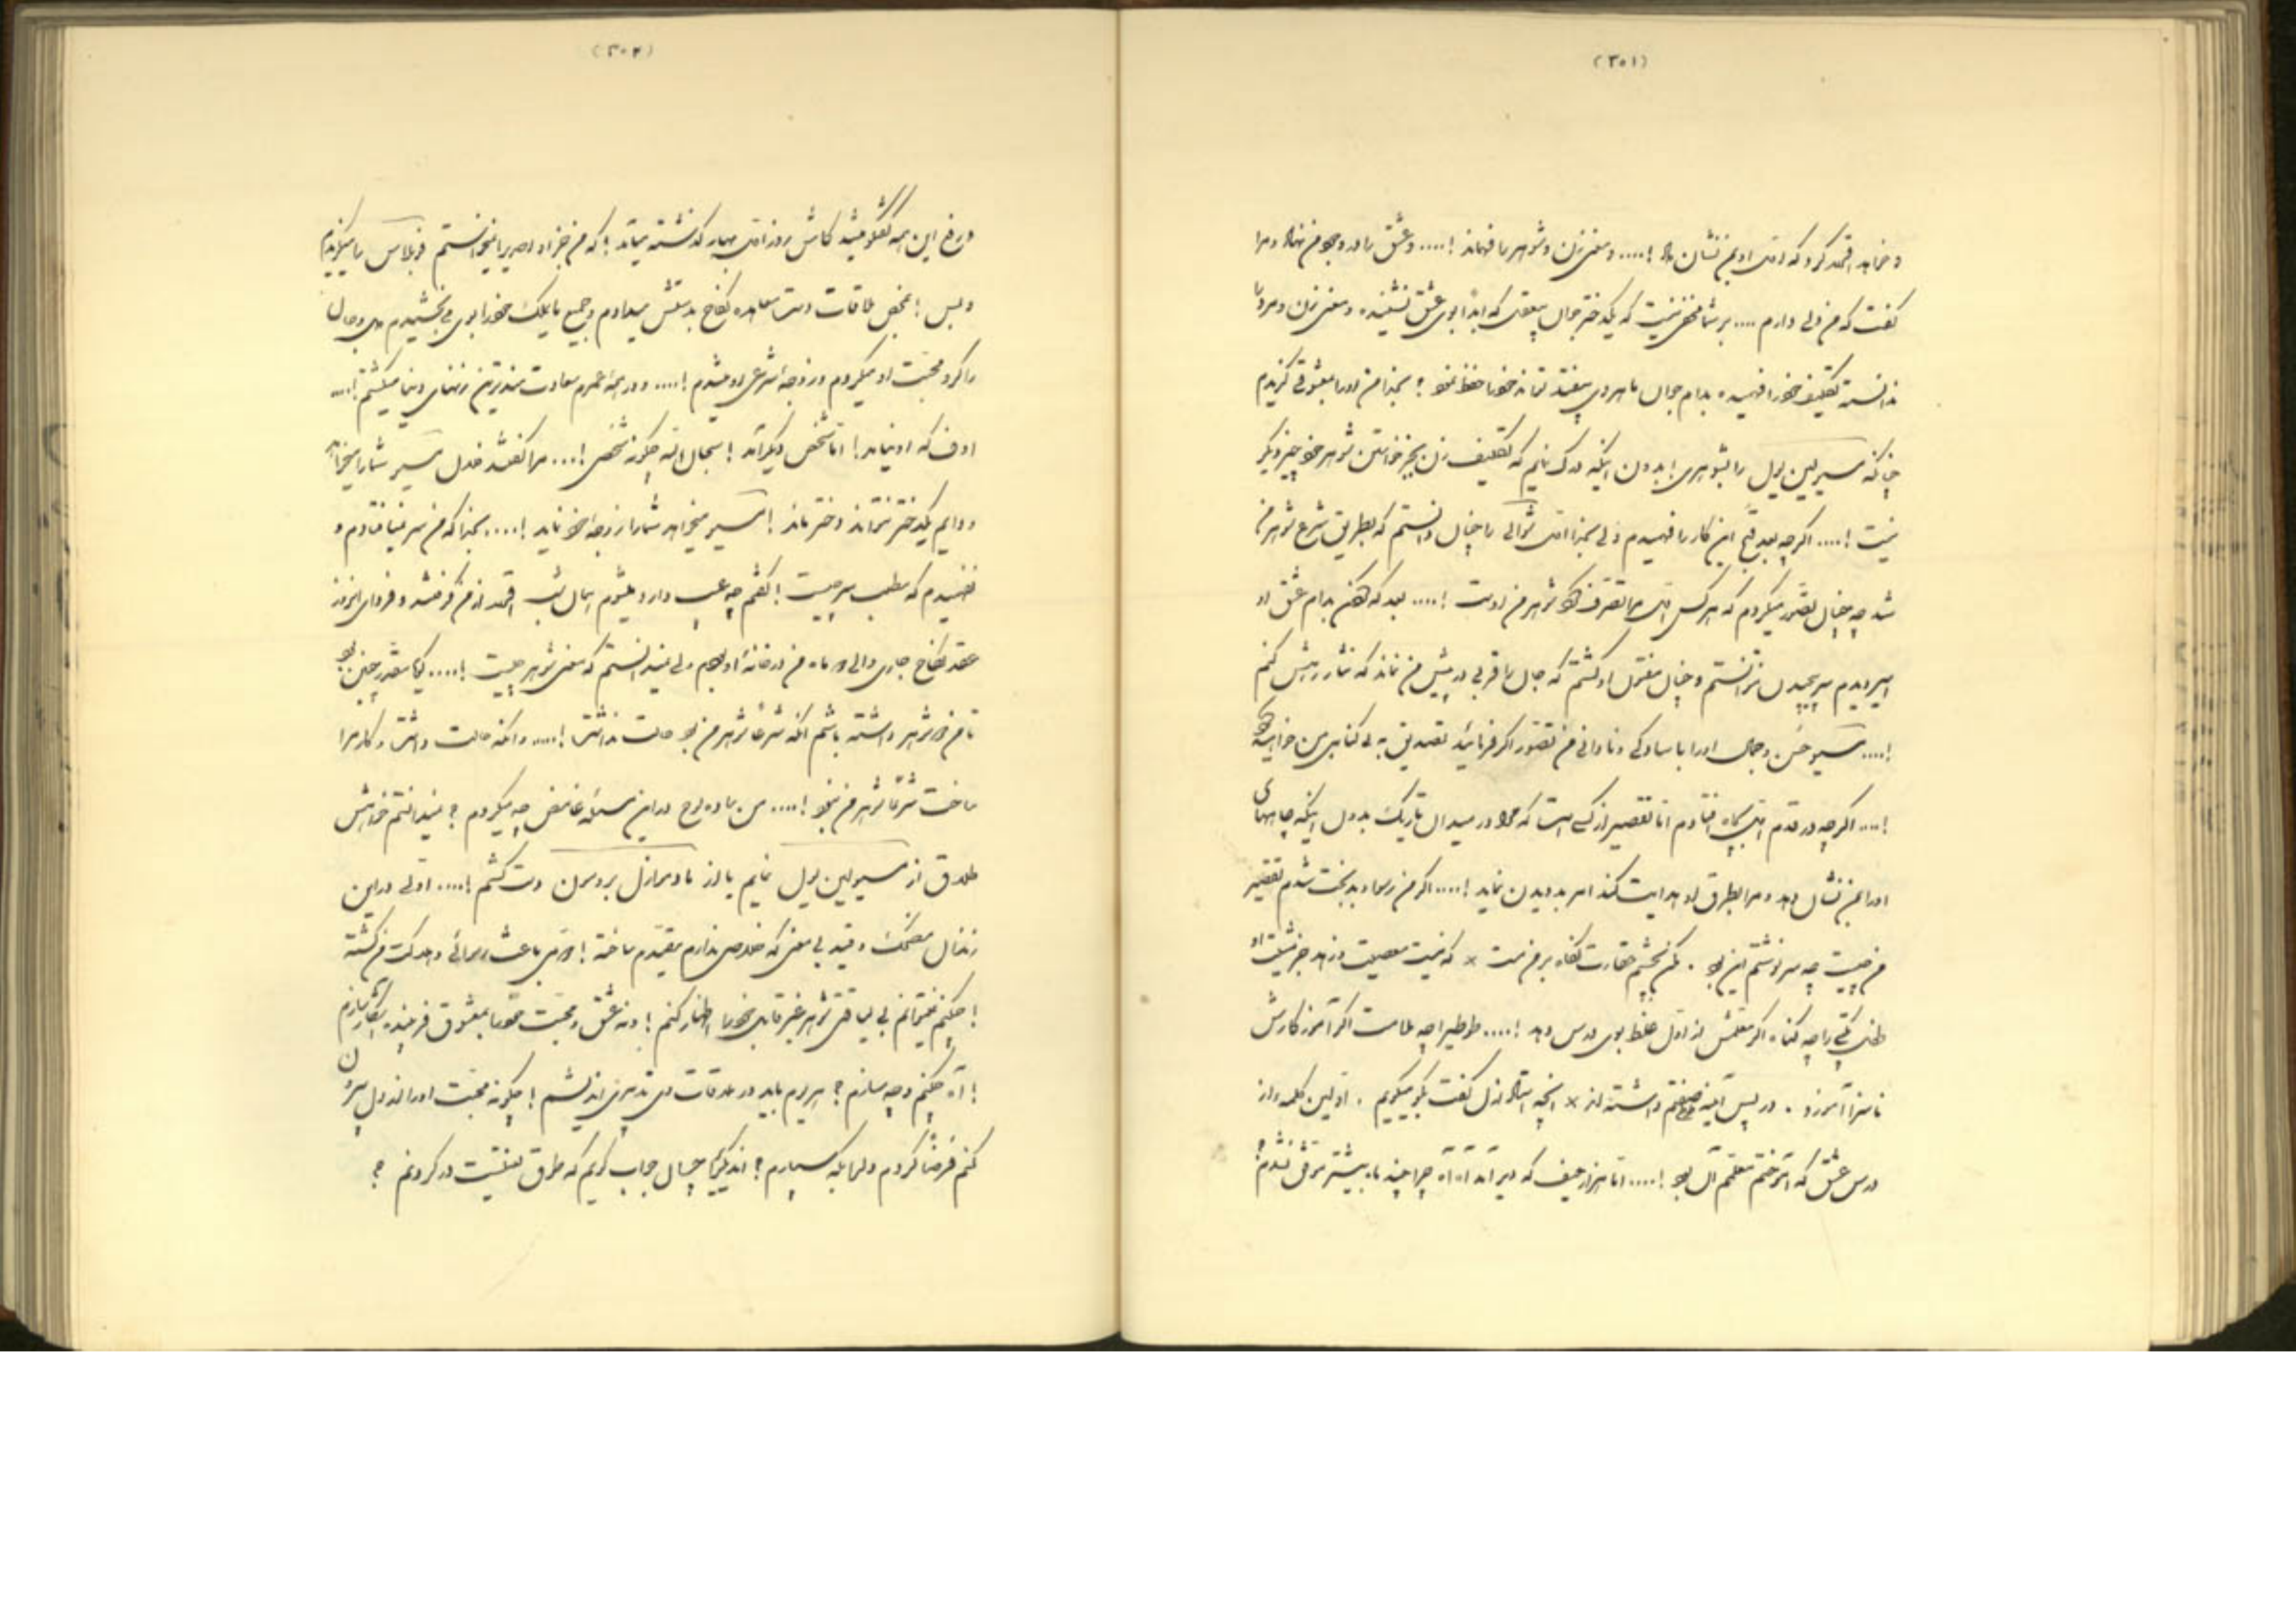 (۳۰۱)
و خواهد کرد که او بمن نشان داد !.... و معنی زن و شوهر را فهماند !.... و عشق را در وجود من نهاد و مرا
گفت که من ولی دارم .... بر شما مخفی نیست که یکدختر جوان بیعقلی که ابداً بوی عشق نشنیده و معنی زن و مرد را
ندانسته تکلیف خود را نفهمیده بدام جوان ماهروی بیفتد نتواند خود را حفظ نمود ؟ بخدا من او را بمعشوقی گزیدم
چنانکه مسیو لین یول را بشوهری ! بدون اینکه درک نمایم که تکلیف زن بجز خواستن شوهر خود چیز دیگر
نیست !.... اگرچه بعد قبح این کار را فهمیدم ولی بخدا را چنان دانستم که بطریق شرع شوهر من
شد چه چنان تصور میکردم که هر کس مرا تصرف کند شوهر من اوست !.... بعد که بدام عشق او
اسیر دیدم سر پیچیدن نتوانستم و چنان مفتون او گشتم که جان را قربی در پیش من نماند که نثار رهش کنم
!.... مسیو حسن و جمال او را با سادگی و نادانی من تصور اگر فرمائید تصدیق به بی گناهی من خواهید
!.... اگرچه در قدم بچاه افتادم اما تقصیر از کسی است که مرا در میدان تاریک بدون اینکه چاههای
او را بمن نشان دهد و مرا بطرق او هدایت کند امر بدویدن نماید !.... اگر من رسوا و بدبخت شدم تقصیر
من چیست چه سرنوشتم این بود . مکن بچشم حقارت نگاه بر من مست × که نیست معصیت و زهد جز مشیت او
طفل را چه گناه اگر معلمش از اول غلط بوی درس دهد !.... طوطیرا چه ملامت اگر آموزگارش
ناسزا آموزد . در پس آینه طوطی صفتم داشته اند × آنچه استاد ازل گفت بگو میگویم . اولین کلمه و از
درس عشق که آموختم معلمم آن بود !.... اما هزار حیف که دیر آمد آه آه چرا چند ماه پیشتر موفق نشدم ؟
(۳۰۲)
این همه گفتگو میشد کاش روز اول بهار گذشته میآمد ! که من جز او احدیرا نمیخواستم را میگزیدم
و بس ! بمحض ملاقات دست معاهده نکاح بدستش میدادم و جمیع مایملک خود را بوی می بخشیدم دل و جان
را گرو محبت او میکردم و زوجه شرعی او میشدم !.... و در همه عمرم سعادت مندترین زنهای دنیا میگشتم !....
اوف که او نیامد ! اما شخص دیگر آمد ! سبحان الله چگونه شخصی !.... مرا گفتند مسیو شما را میخواهد
و دایم یکدختر نتواند دختر ماند ! مسیو میخواهد شما را زوجه خود نماید !.... بخدا که من سر نیفتادم و
نفهمیدم که مطلب سر چیست ! گفتم چه عیب دارد میشوم همان شب از من گرفتند و فردای آنروز
عقد نکاح جاری و الی ماه من در خانه او بودم ولی نمیدانستم که معنی شوهر چیست !.... گویا مقدر چنین بود
تا من شوهر داشته باشم آنکه شرعاً شوهر من بود حالت نداشت !.... و آنکه حالت داشت و کار مرا
ساخت شرعاً شوهر من نبود !.... من ساده لوح در این مسئله غامض چه میکردم ؟ نمیدانستم خواهش
طلاق از مسیو لین یول نمایم یا از مادموازل بردمون دست کشم !.... اولی در این
زندان مضحک و قید بی معنی که خلاصی ندارم مقیدم ساخته ! دومی باعث رسوائی و هلاکت من گشته
! چکنم نمیتوانم بی لیاقتی شوهر غیر قابل خود را اظهار کنم ! و نه عشق و محبت خود را بمعشوق فریبنده آشکار سازم
! آه چکنم و چه سازم ؟ هر روم باید در ملاقات وی تدبیری اندیشم ! چگونه محبت او را از دل بیرون
کنم فرضاً کردم و لما بکه سپارم ؟ اندیگریرا چسان جواب گویم که طوق تعشقیت در گردنم ؟